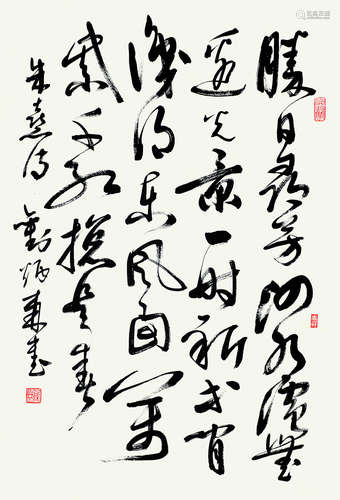 勝日尋芳泗水濱無
邊光景一時新等閒
識得東風面萬
紫千紅總是春
朱熹诗 劉炳書